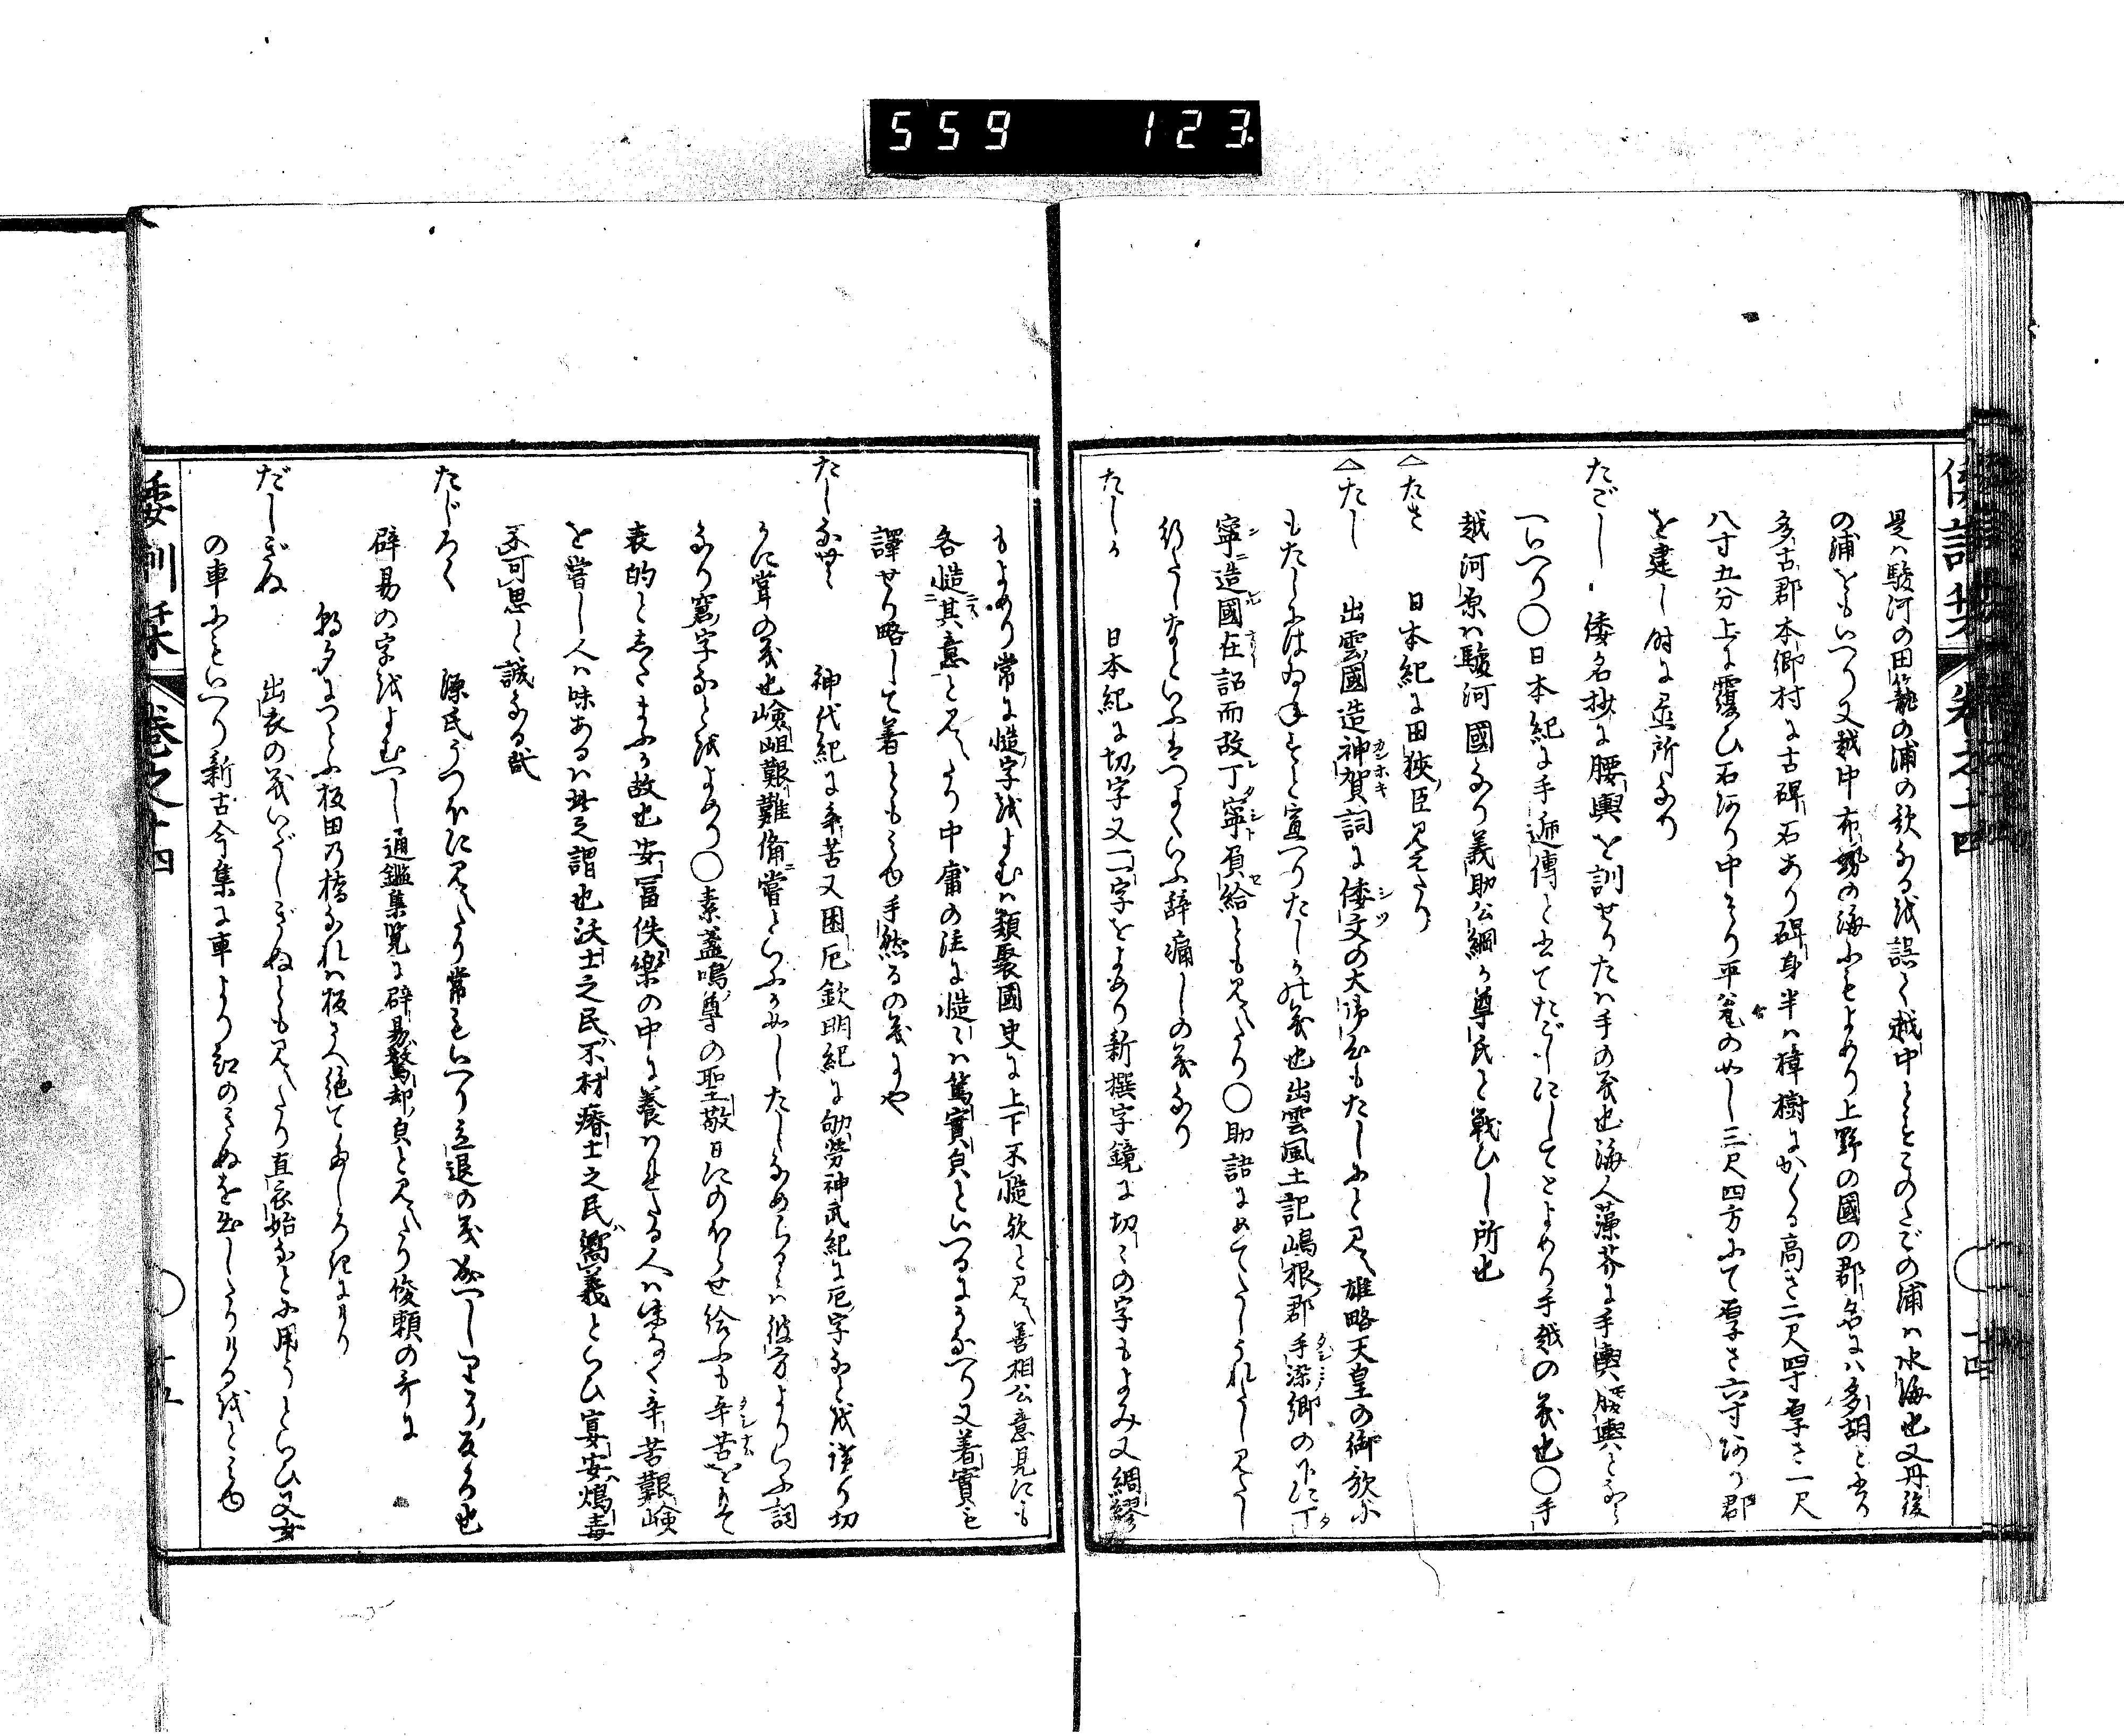 559 123
倭訓栞 巻之十四 十四
是ハ駿河の田籠の浦の歌なるを誤て越中とせりこのたごの浦ハ水海也又丹後
の浦をもいへり又越中布勢の海にもよめり上野の國の郡名にハ多胡と書り
多古郡本郷村に古碑石あり碑身半ハ樟樹にかくる高さ二尺四寸厚さ一尺
八寸五分上に覆ひ石あり中より平瓮の如し三尺四方にて厚さ六寸あり郡
を建し時に並所なり
たごし 倭名抄に腰輿を訓せりたハ手の義也海人藻芥に手輿腰輿となら
へいへり○日本紀に手逓傳と書てたごしにしてとよめり手越の義也○手
越河原ハ駿河國なり義助公綱か尊氏と戦ひし所也
△たさ 日本紀に田狹臣見えたり
△たし 出雲國造神賀詞に倭文の大御心もたしにと見ゆ雄略天皇の御歌に
もたしにはゐねずと宣へりたしかの義也出雲風土記嶋根郡手染郷の下に丁
寧造國在詔而故丁寧負給とも見へたり○助語にめてたしうれたし見たし
行たしなといふはつよくいふ辞痛しの義なり
たしか 日本紀に切字又一字をよめり新撰字鏡に切ミの字もよみ又綢繆
もよめり常に慥字をよむハ類聚國史に上下不慥歟と見ゆ善相公意見にも
各慥其意と見へたり中庸の注に慥ミハ篤實皃といへるにかなへり又着實を
譯せり略して着ともミゆ手然るの義にや
たしなむ 神代紀に辛苦又困厄欽明紀に劬勞神武紀に厄字などを訓り切
に甞の義也嶮岨艱難備甞といふか如したしなめらるゝハ彼方よりいふ詞
なり窘字などをよめり○素盞鳴尊の聖敬日にのほらせ給ふも辛苦をもて
表的としたまふか故也安冨佚樂の中に養ハれたる人ハ味なく辛苦艱嶮
を甞し人ハ味あるハ此之謂也沃土之民不材瘠土之民嚮義といひ宴安鴆毒
不可思と誠なる哉
たじろく 源氏うつほに見へたり常もいへり立退の義成へしりそ反ろ也
辟易の字をよむへし通鑑集覧に辟易驚却皃と見へたり俊頼の哥に
朝夕につとふ板田の橋なれハ板さへ絶てたしろきにけり
だしぎぬ 出衣の義いだしぎぬとも見へたり直衣始などに用うといひ又女
の車にもいへり新古今集に車より紅のきぬを出したりけるをともミゆ
倭訓栞 巻之十四 十五